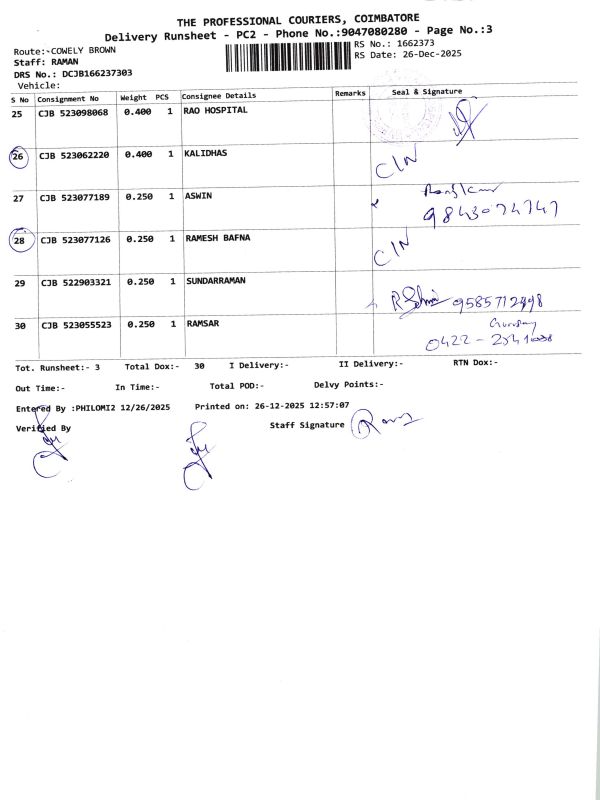 THE PROFESSIONAL COURIERS, COIMBATORE
Delivery Runsheet - PC2 - Phone No.:9047080280 - Page No.:3
Route:-COWELY BROWN
RS No.: 1662373
Staff: RAMAN
RS Date: 26-Dec-2025
DRS No.: DCJB166237303
Vehicle:
S No Consignment No Weight PCS Consignee Details Remarks Seal & Signature
25 CJB 523098068 0.400 1 RAO HOSPITAL
26 CJB 523062220 0.400 1 KALIDHAS C/N
27 CJB 523077189 0.250 1 ASWIN
9843074747
28 CJB 523077126 0.250 1 RAMESH BAFNA C/N
29 CJB 522903321 0.250 1 SUNDARRAMAN
30 CJB 523055523 0.250 1 RAMSAR
0422 -
Tot. Runsheet:- 3 Total Dox:- 30 I Delivery:- II Delivery:- RTN Dox:-
Out Time:- In Time:- Total POD:- Delvy Points:-
Entered By :PHILOMI2 12/26/2025 Printed on: 26-12-2025 12:57:07
Verified By Staff Signature